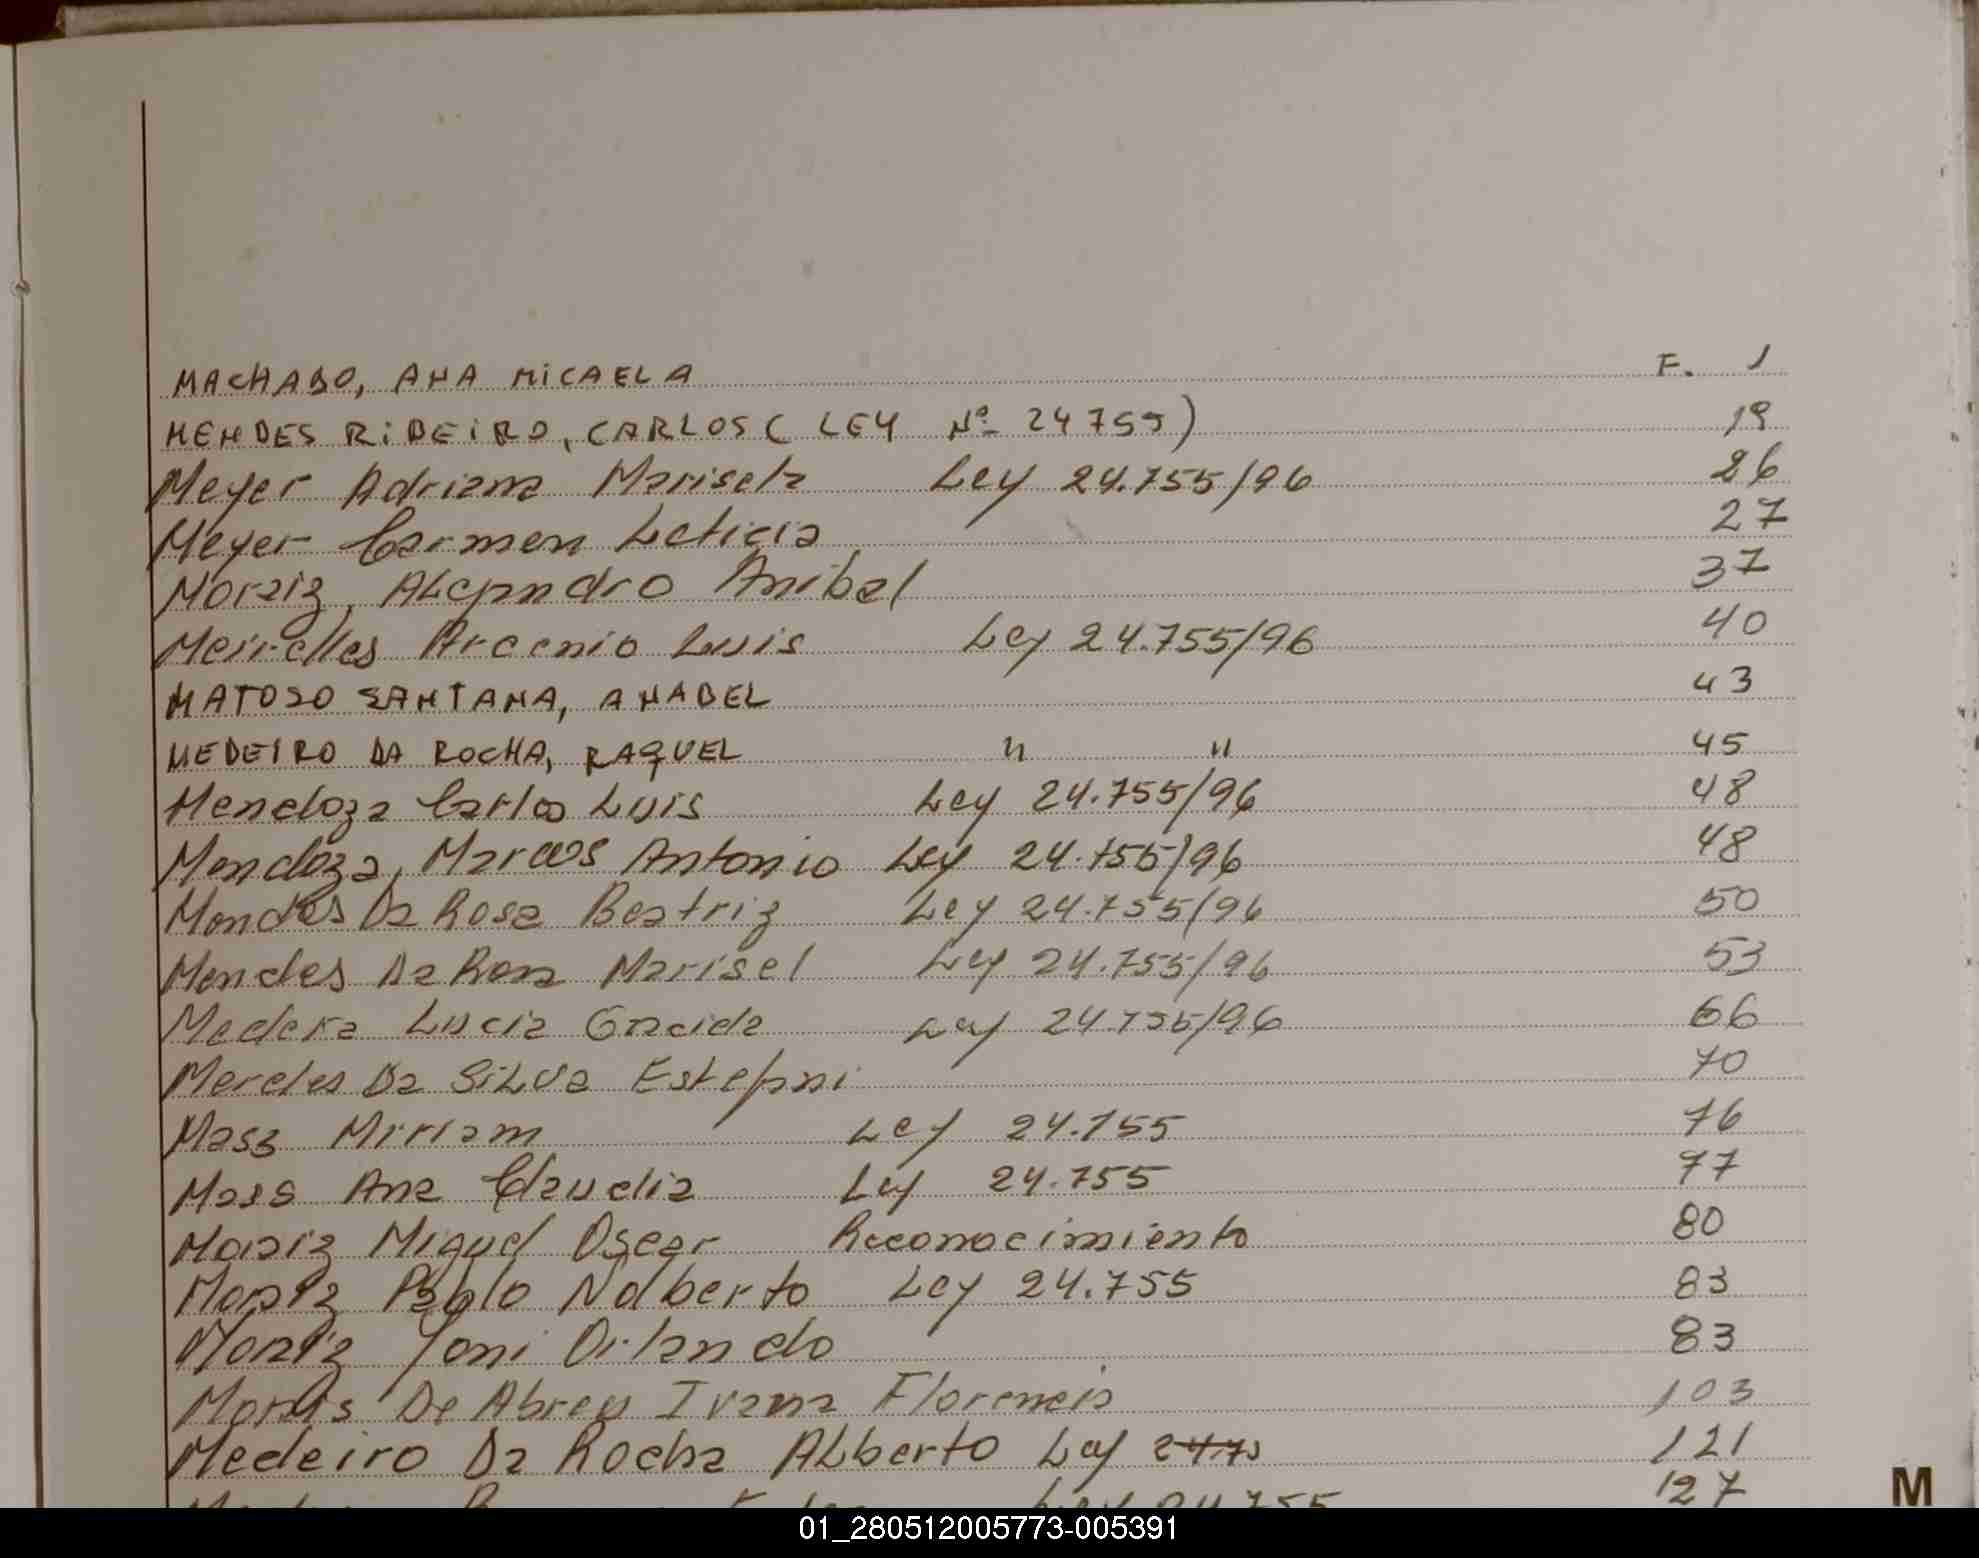 MACHADO, ANA MICAELA F. 1
MENDES RIBEIRO, CARLOS ( LEY Nº 24755) 19
Meyer Adriana Marisela Ley 24.755/96 26
Meyer Carmen Leticia 27
Moraiz, Alejandro Anibal 37
Meirelles Arcenio Luis Ley 24.755/96 40
MATOSO SANTANA, ANABEL 43
MEDEIRO DA ROCHA, RAQUEL " " 45
Mendoza Carlos Luis Ley 24.755/96 48
Mendoza, Marcos Antonio Ley 24.755/96 48
Mendes Da Rosa Beatriz Ley 24.755/96 50
Mendes Da Rosa Marisel Ley 24.755/96 53
Medera Lucia Ley 24.755/96 66
Da Silva Estefani 70
Mass Miriam Ley 24.755 76
Mass Ana Claudia Ley 24.755 77
Moraiz Miguel Oscar Reconocimiento 80
Moraiz Pablo Nolberto Ley 24.755 83
Moraiz Yoni Orlando 83
De Abreu Ivana Florencia 103
Medeiro Da Rocha Alberto Ley 121
Ley 24.755 127
M
01_280512005773-005391